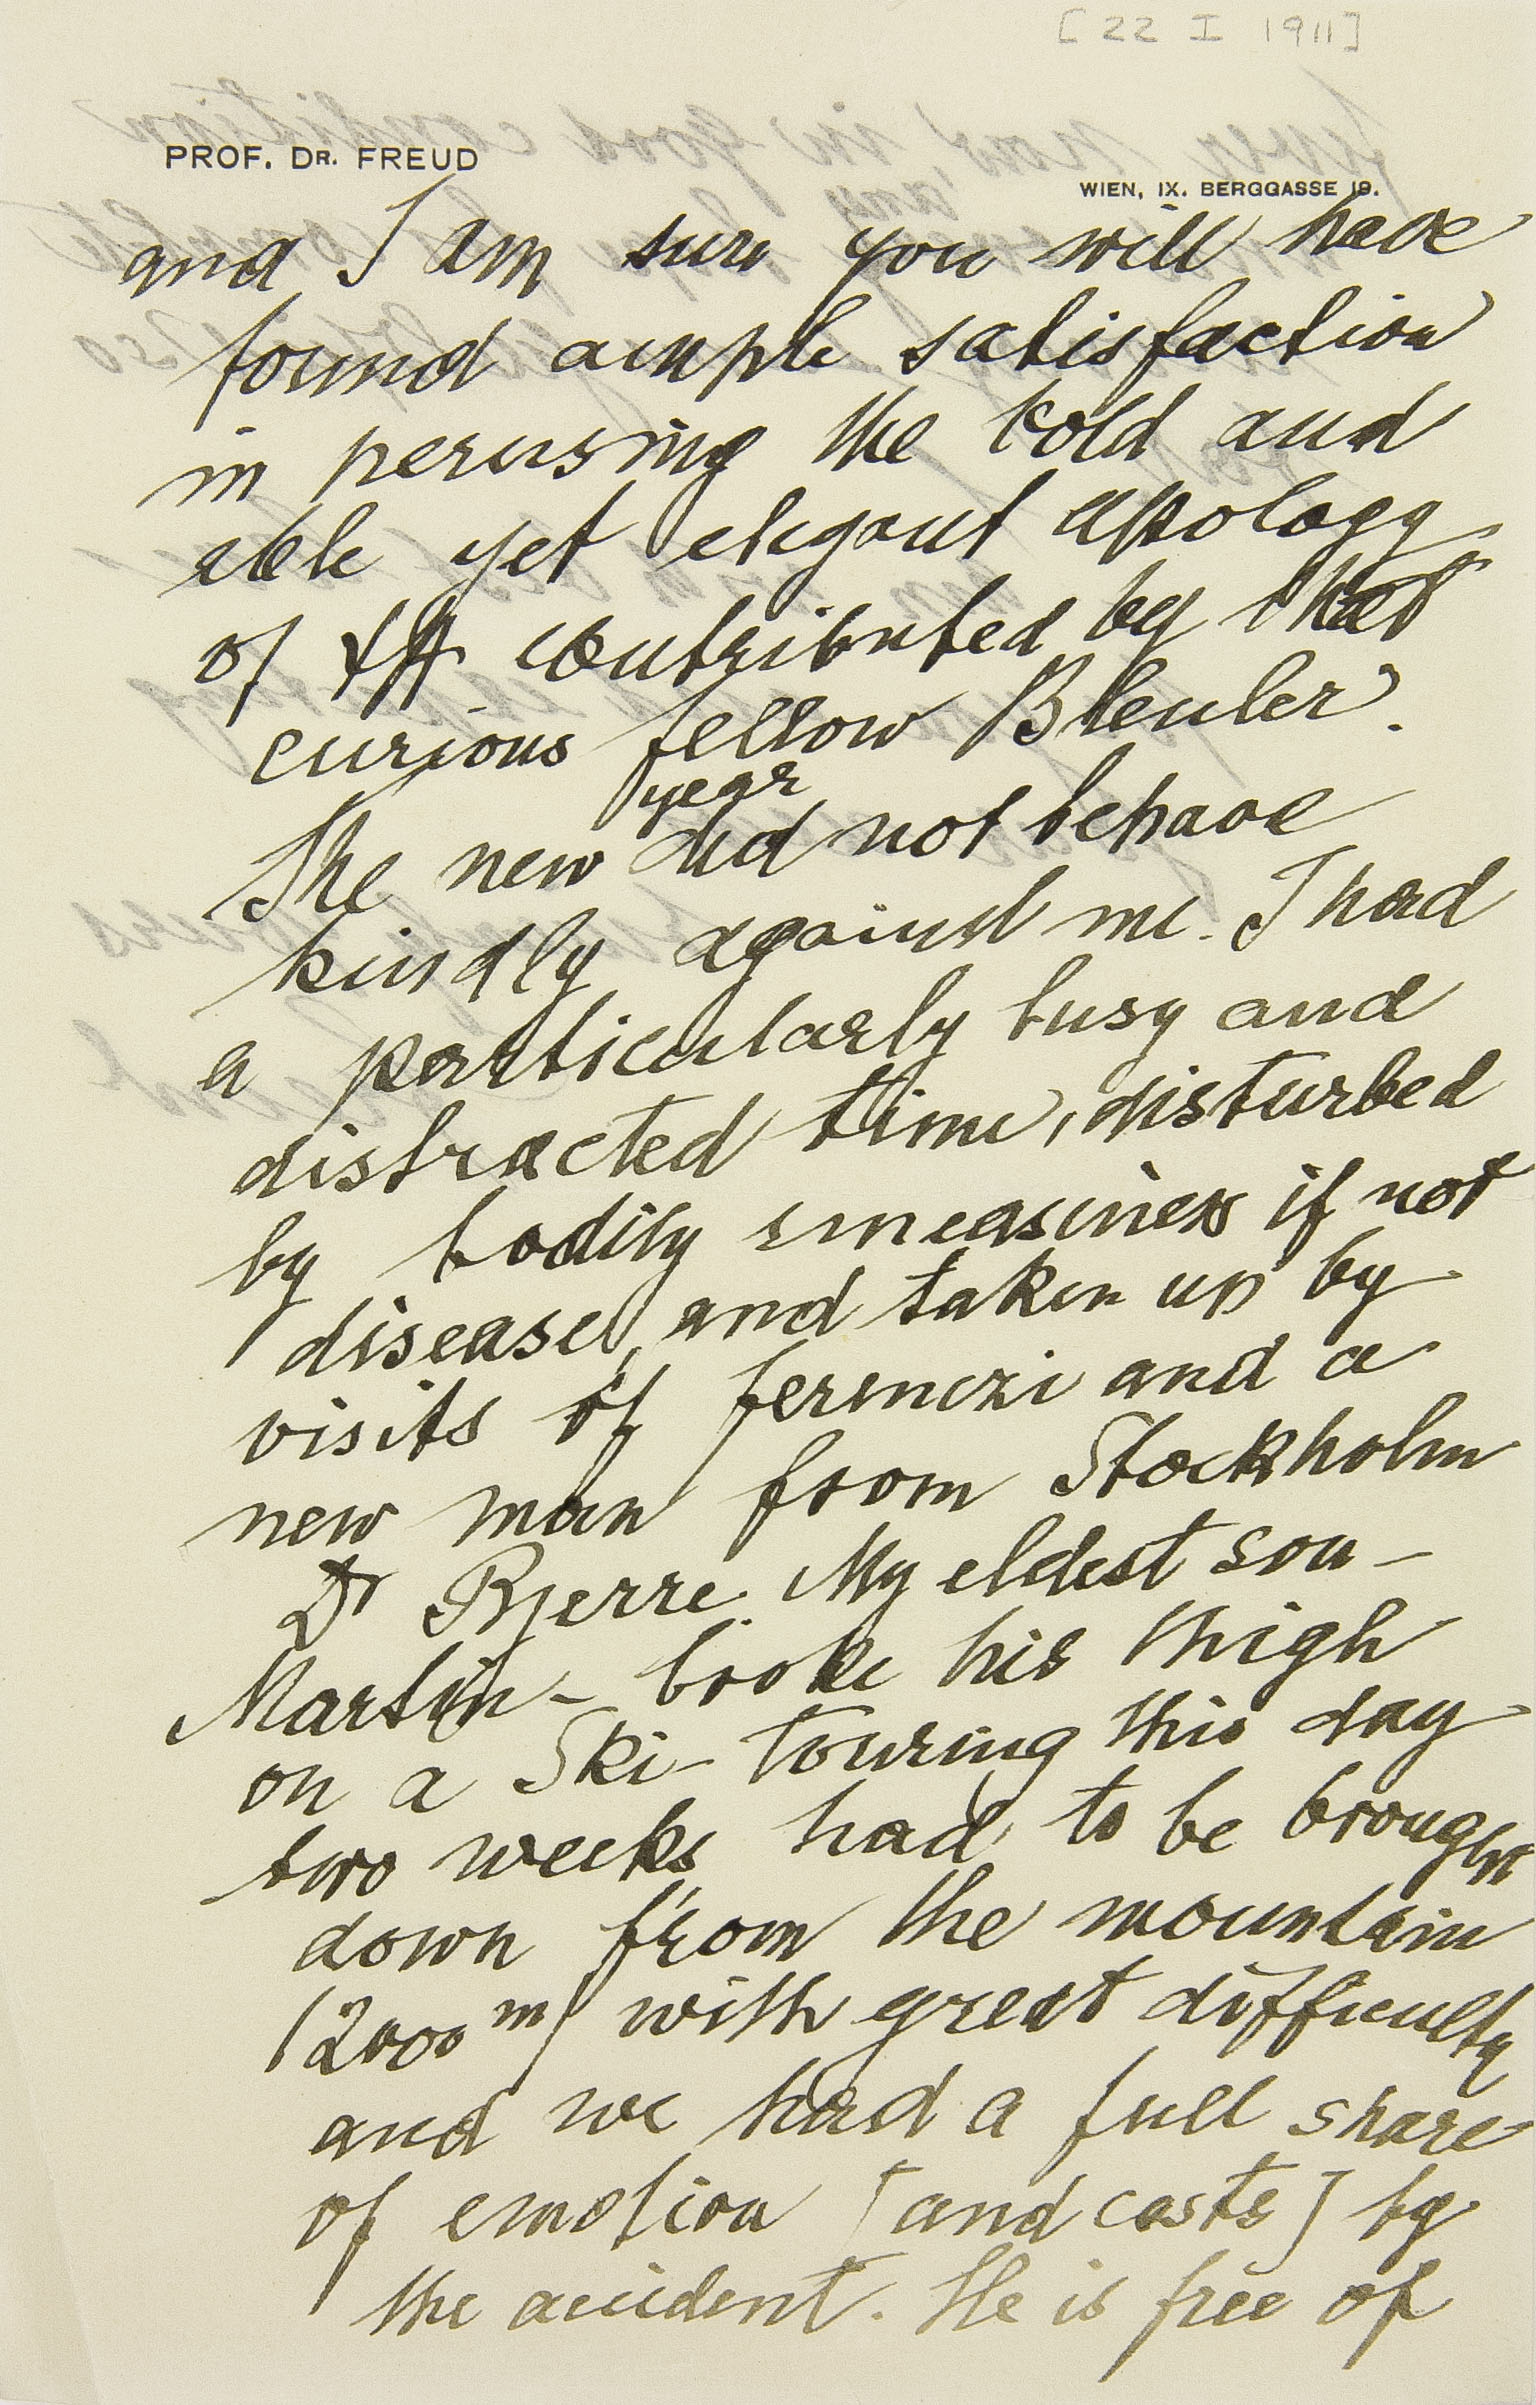 [22 I 1911]
PROF. DR. FREUD
WIEN, IX. BERGGASSE 19.
and I am sure you will have
found ample satisfaction
in perusing the bold and
able yet elegant apology
of ΨA contributed by that
curious fellow Bleuler.
The new year did not behave
kindly against me. I had
a particularly busy and
distracted time, disturbed
by bodily uneasiness if not
disease, and taken up by
visits of Ferenczi and a
new man from Stockholm
Dr Bjerre. My eldest son –
Martin – broke his thigh
on a Ski-touring this day
two weeks, had to be brought
down from the mountain
(2000 m) with great difficulty
and we had a full share
of emotion [and costs] by
the accident. He is free of